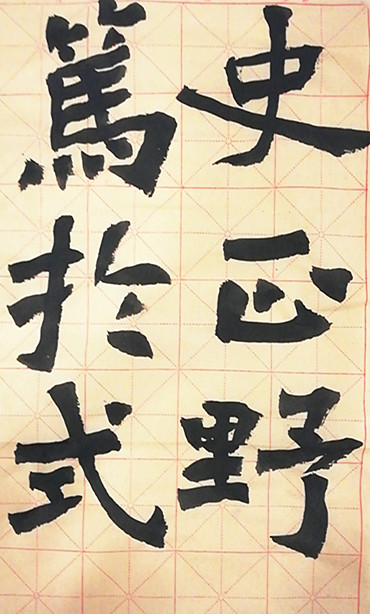 史正野
篤於式